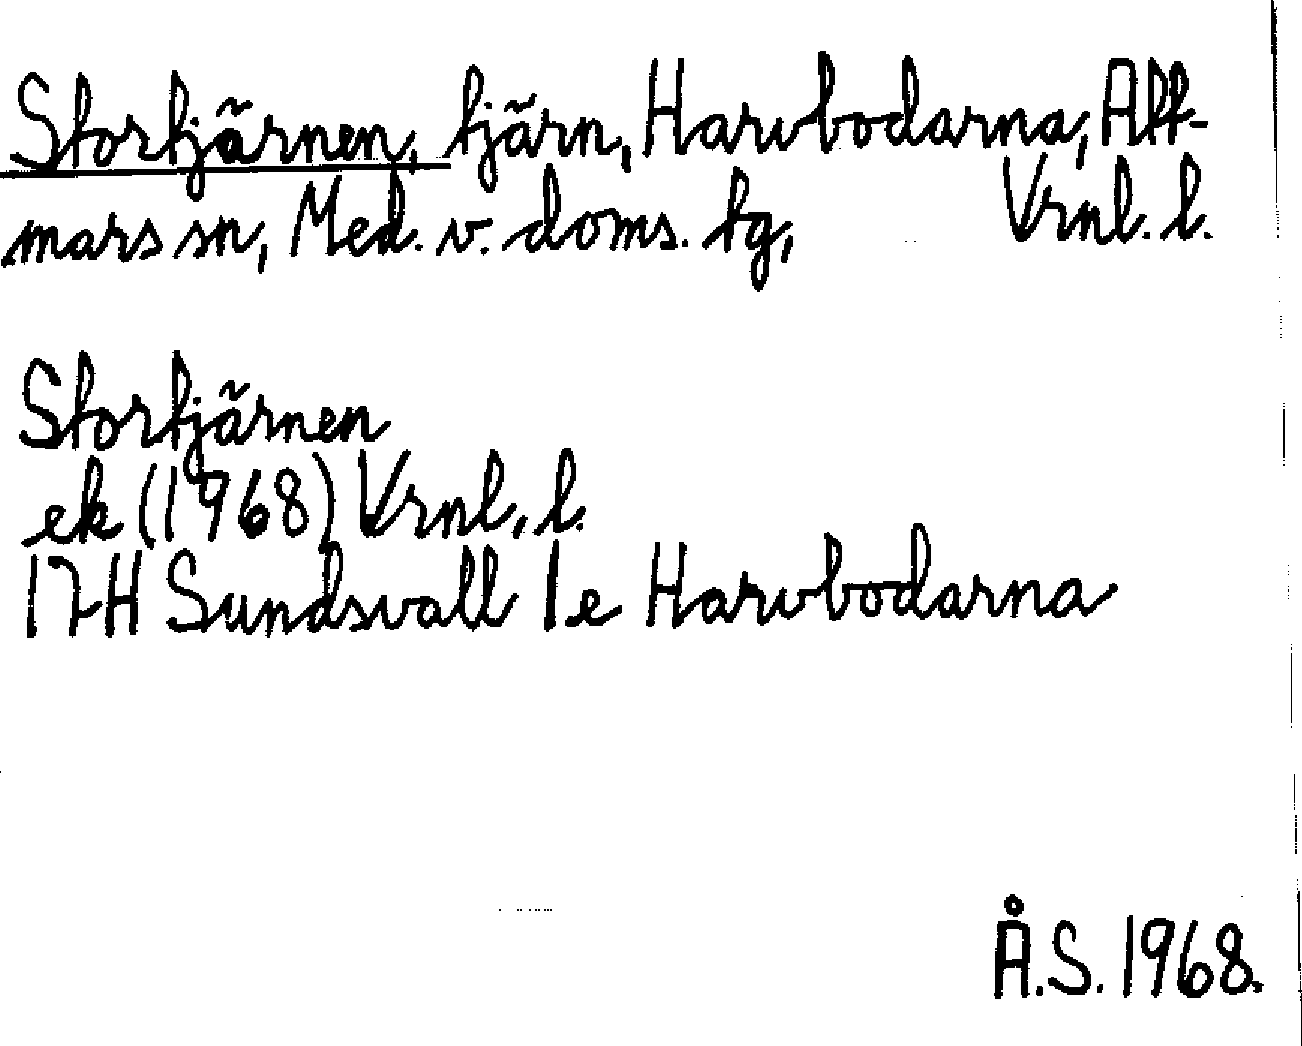 Stortjärnen, tjärn, Harvbodarna, Att-
mars sn, Med. v. doms. tg, Vrnl. l.
Stortjärnen
ek (1968) Vrnl. l.
17H Sundsvall 1e Harvbodarna
Å.S. 1968.